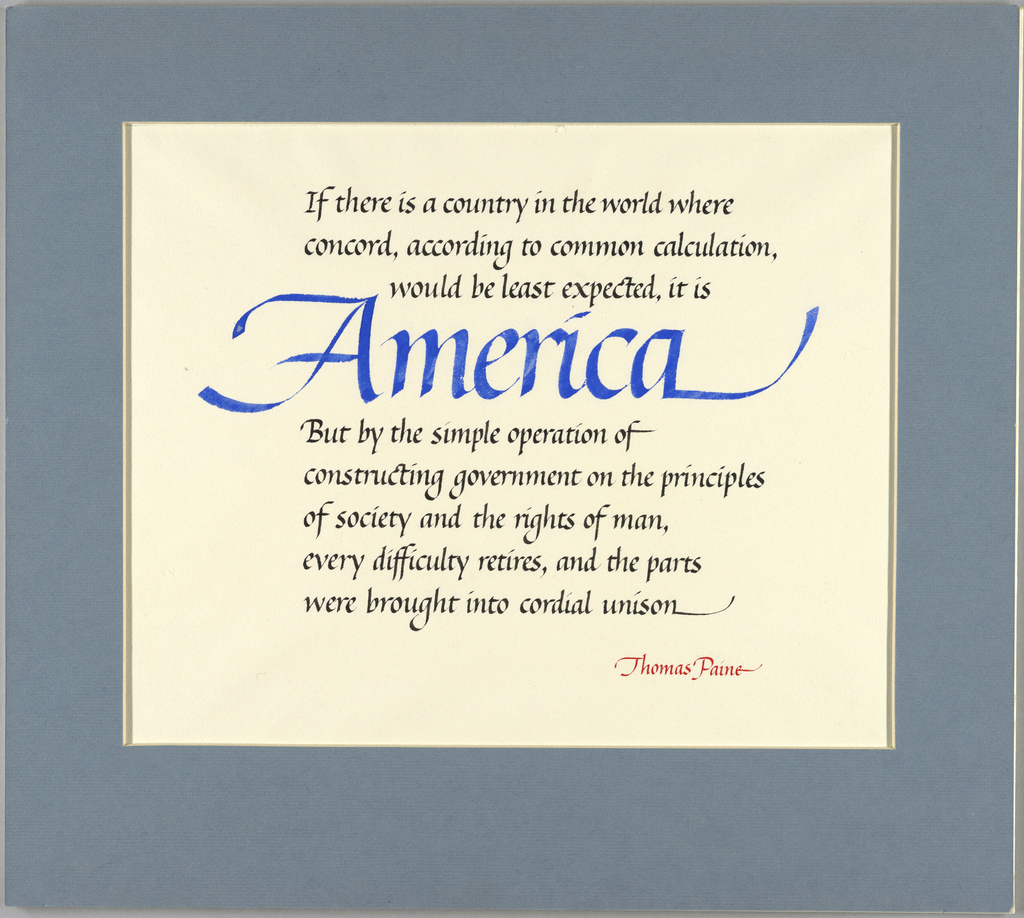 If there is a country in the world where
concord, according to common calculation,
would be least expected, it is
America
But by the simple operation of
constructing government on the principles
of society and the rights of man,
every difficulty retires, and the parts
were brought into cordial unison
Thomas Paine